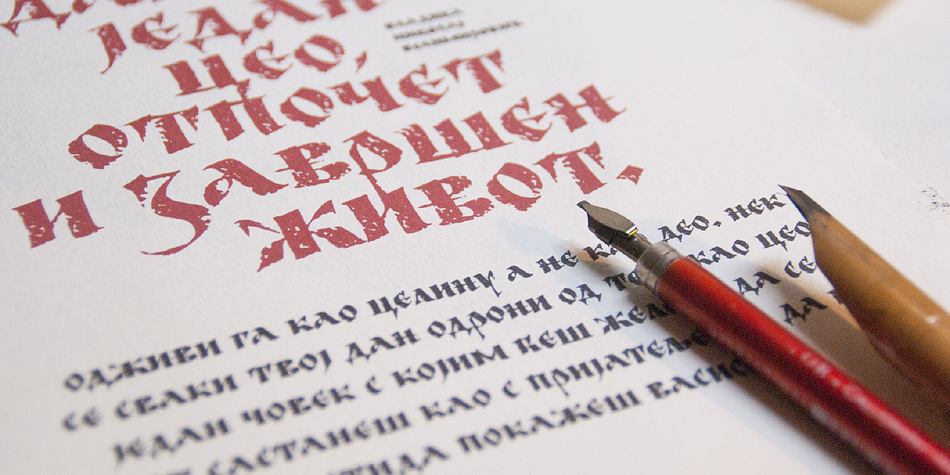 ЈЕДАН
ЦЕО,
ОТПОЧЕТ
И ЗАВРШЕН
ЖИВОТ.
ВЛАДИКА
НИКОЛАЈ
ВЕЛИМИРОВИЋ
ОДЖИВИ ГА КАО ЦЕЛИНУ А НЕ ДЕО. НЕК
СЕ СВАКИ ТВОЈ ДАН ОДРОНИ ОД КАО ЦЕО
ЈЕДАН ЧОВЕК С КОЈИМ ЋЕШ ДА СЕ
САСТАНЕШ КАО С ДА
ПОКАЖЕШ